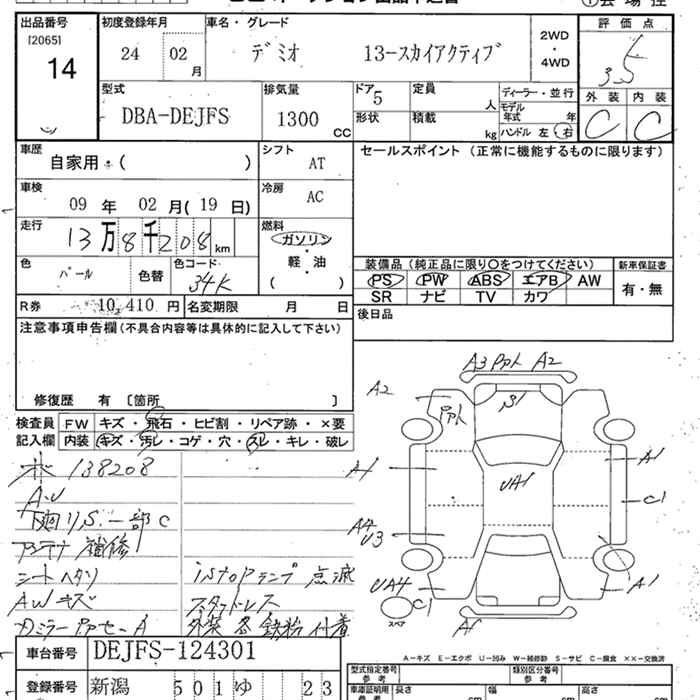 出品番号 初度登録年月 車名・グレード 評価点
[2065]
14
24 02 月
デミオ 13-スカイアクティブ
2WD
・
4WD
3.5
外装 内装
C C
型式 排気量 ドア 定員 ディーラー・並行
DBA-DEJFS 1300 CC 5 人
形状 積載 kg
モデル年式 年
ハンドル 左・右
車歴 シフト セールスポイント (正常に機能するものに限ります)
自家用・( ) AT
車検 冷房
09 年 02 月( 19 日) AC
走行 燃料
13万8千208 km
ガソリン
・
軽・油
( )
色 色替 色コード
パール 34K
装備品 (純正品に限り○をつけてください) 新車保証書
PS PW ABS エアB AW 有・無
SR ナビ TV カワ
R券 10,410 円 名変期限 月 日
後日品
注意事項申告欄(不具合内容等は具体的に記入して下さい)
修復歴 有 〔箇所 〕
検査員 FW キズ・飛石・ヒビ割・リペア跡・×要
記入欄 内装 キズ・汚レ・コゲ・穴・スレ・キレ・破レ
138208
下廻りS.一部C
アンテナ補修
シートヘタリ istopランプ点滅
AWキズ スタッドレス
外装各鉄粉付着
A3 A2
A2
A1 UA1 A1
C1
A4
U3
UA4 A1
C1
スペア
A1
A-キズ E-エクボ U-凹み W-補修跡 S-サビ C-腐食 ××-交換済
車台番号 DEJFS-124301
登録番号 新潟 501 ゆ 23
型式指定番号 参考 類別区分番号 参考
車庫証明用 参考 長さ cm 幅 cm 高さ cm